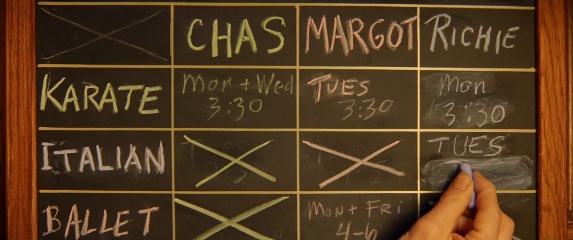 CHAS MARGOT RICHIE
KARATE Mon + Wed TUES Mon
3:30 3:30 3:30
ITALIAN TUES
BALLET Mon + Fri
4-6